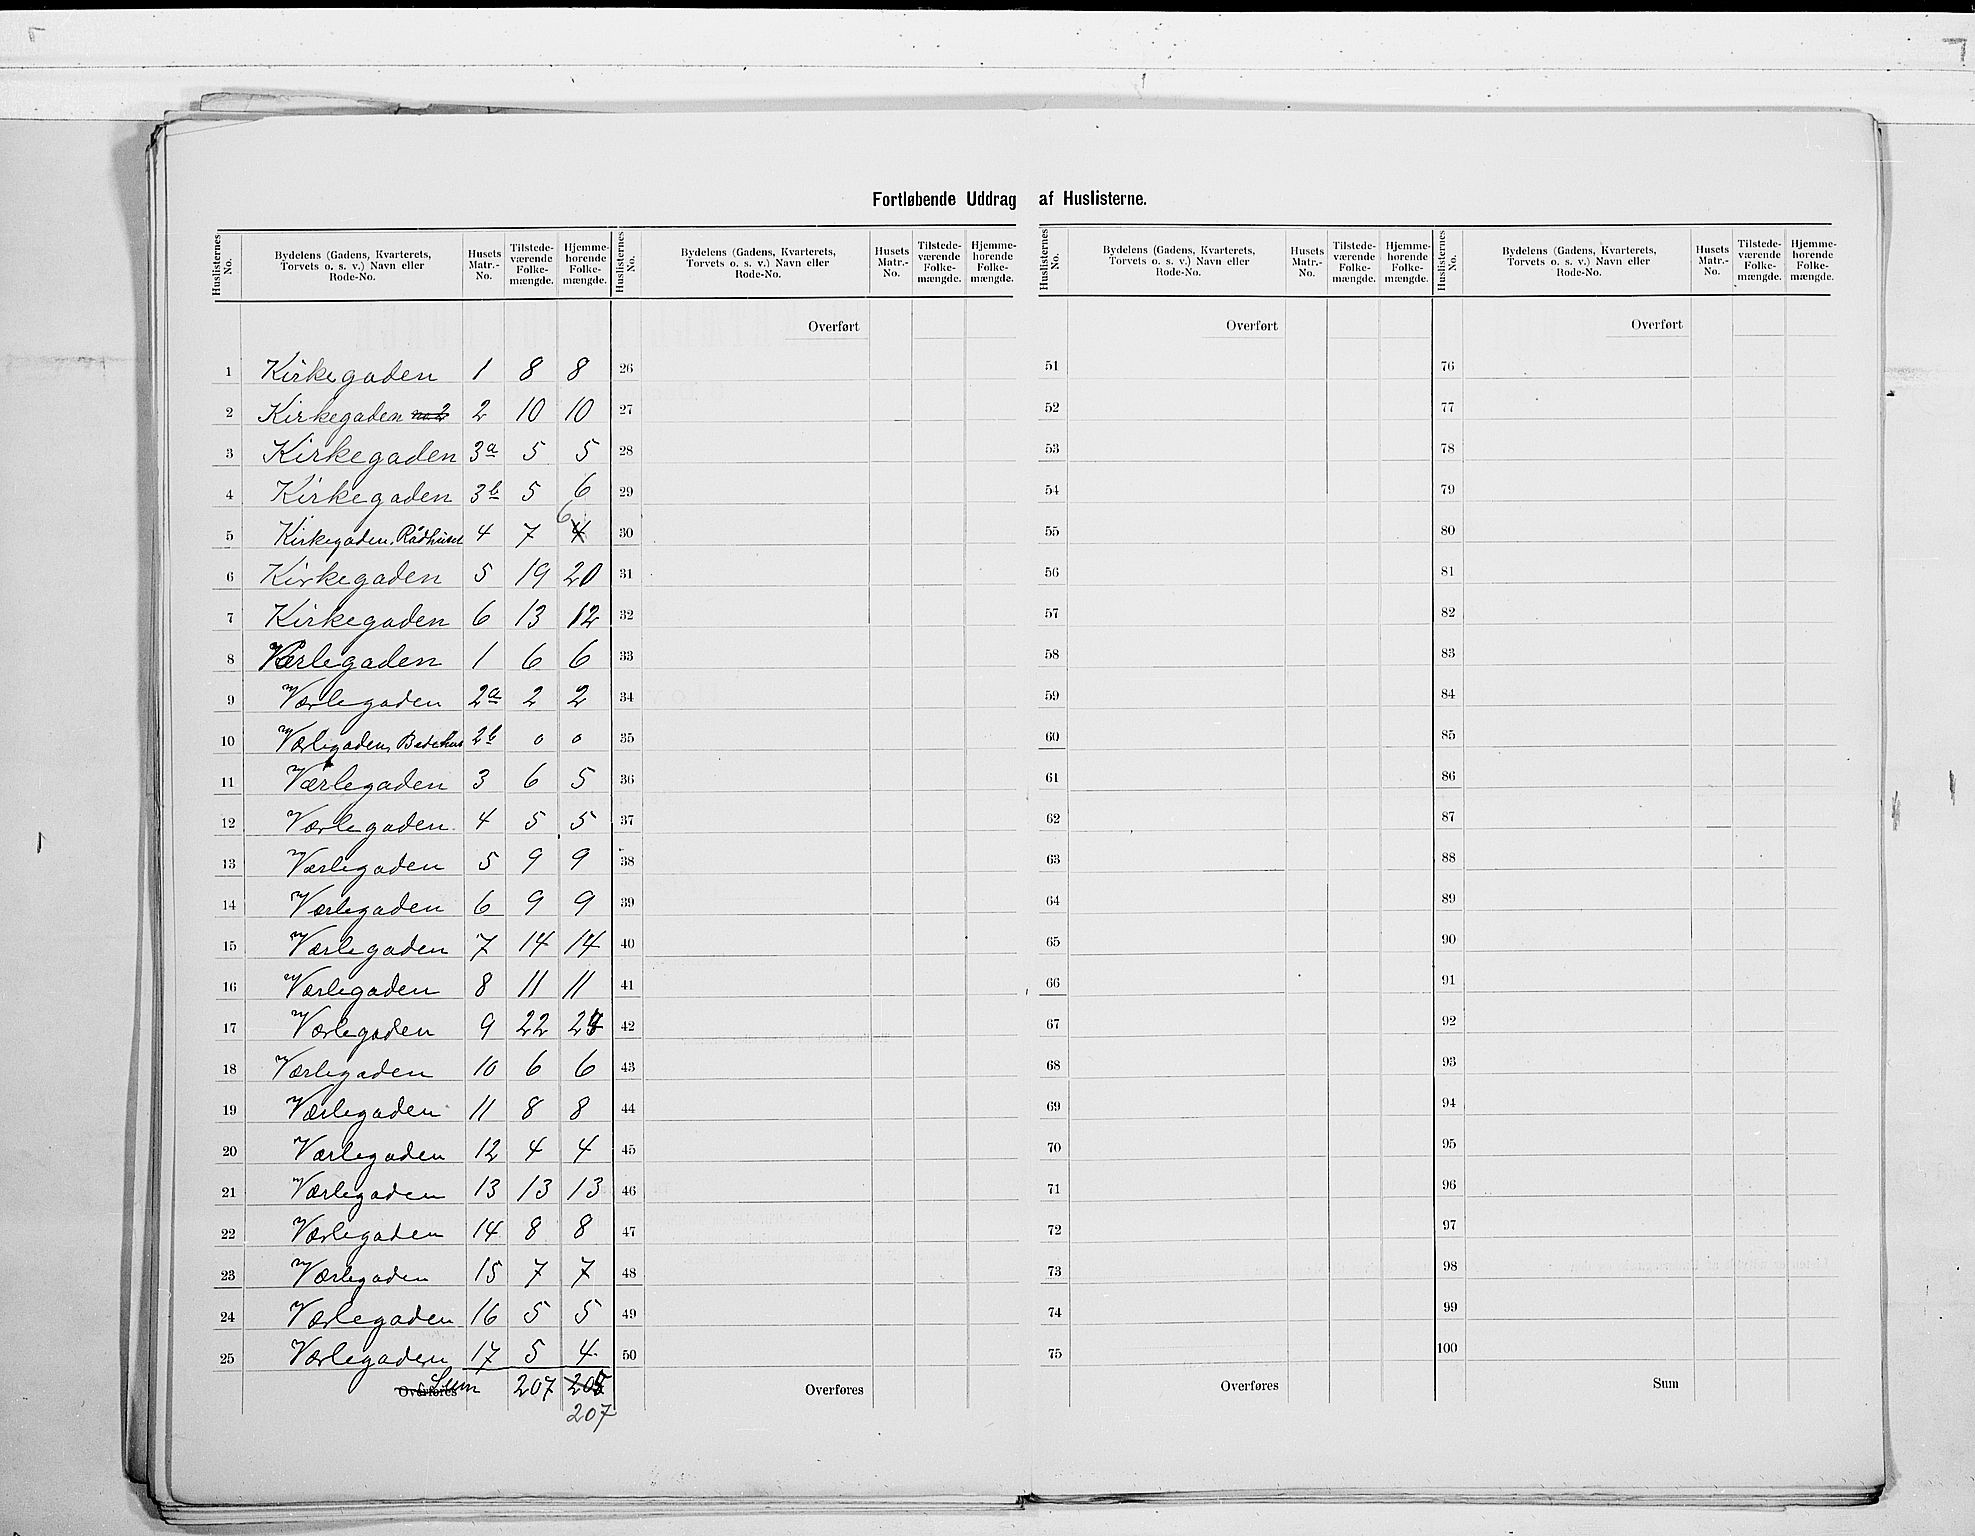 Fortløbende Uddrag af Huslisterne.
Huslisternes No. Bydelens (Gadens, Kvarterets, Torvets o. s. v.) Navn eller Rode-No. Husets Matr.-No. Tilstedeværende Folkemængde. Hjemmehørende Folkemængde. Huslisternes No. Bydelens (Gadens, Kvarterets, Torvets o. s. v.) Navn eller Rode-No. Husets Matr.-No. Tilstedeværende Folkemængde. Hjemmehørende Folkemængde. Huslisternes No. Bydelens (Gadens, Kvarterets, Torvets o. s. v.) Navn eller Rode-No. Husets Matr.-No. Tilstedeværende Folkemængde. Hjemmehørende Folkemængde. Huslisternes No. Bydelens (Gadens, Kvarterets, Torvets o. s. v.) Navn eller Rode-No. Husets Matr.-No. Tilstedeværende Folkemængde. Hjemmehørende Folkemængde.
Overført Overført Overført
1 Kirkegaden 1 8 8 26 51 76
2 Kirkegaden no 2 2 10 10 27 52 77
3 Kirkegaden 3a 5 5 28 53 78
4 Kirkegaden 3b 5 6 29 54 79
5 Kirkegaden, Rådhuset 4 7 4 6 30 55 80
6 Kirkegaden 5 19 20 31 56 81
7 Kirkegaden 6 13 12 32 57 82
8 Værlegaden 1 6 6 33 58 83
9 Værlegaden 2a 2 2 34 59 84
10 Værlegaden, Badehus 2b 0 0 35 60 85
11 Værlegaden 3 6 5 36 61 86
12 Værlegaden 4 5 5 37 62 87
13 Værlegaden 5 9 9 38 63 88
14 Værlegaden 6 9 9 39 64 89
15 Værlegaden 7 14 14 40 65 90
16 Værlegaden 8 11 11 41 66 91
17 Værlegaden 9 22 24 42 67 92
18 Værlegaden 10 6 6 43 68 93
19 Værlegaden 11 8 8 44 69 94
20 Værlegaden 12 4 4 45 70 95
21 Værlegaden 13 13 13 46 71 96
22 Værlegaden 14 8 8 47 72 97
23 Værlegaden 15 7 7 48 73 98
24 Værlegaden 16 5 5 49 74 99
25 Værlegaden 17 5 4 50 75 100
Overføres Sum 207 205 Overføres Overføres Sum
207